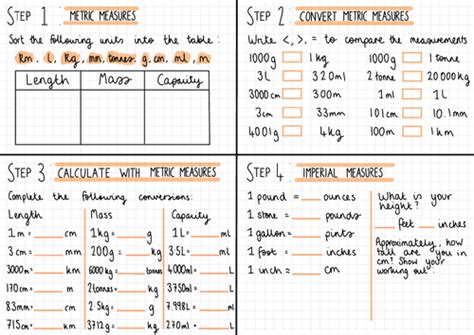 STEP 1: METRIC MEASURES
Sort the following units into the table:
km, l, kg, mm, tonnes, g, cm, ml, m
Length Mass Capacity
STEP 2: CONVERT METRIC MEASURES
Write <, >, = to compare the measurements
1000g 1kg 500m 5km
3L 320ml 2 tonne 20000kg
3000m 300cm 1ml 1L
3cm 33mm 10cm 10.1mm
4001g 4kg 100m 1km
STEP 3 CALCULATE WITH METRIC MEASURES
Complete the following conversions:
Length Mass Capacity
1m = cm 1kg = g 1L = ml
3cm = mm 200g = kg 3.5L = ml
3000m = km 6000kg = tonnes 4000ml = L
170cm = m 2tonnes = kg 3170ml = L
83mm = cm 2.5kg = g 7.998L = ml
715cm = km 3712g = kg 270ml = L
STEP 4: IMPERIAL MEASURES
1 pound = ounces
1 stone = pounds
1 gallon = pints
1 foot = inches
1 inch = cm
What is your height?
feet inches
Approximately, how
tall are you in
cm? Show your
working out.